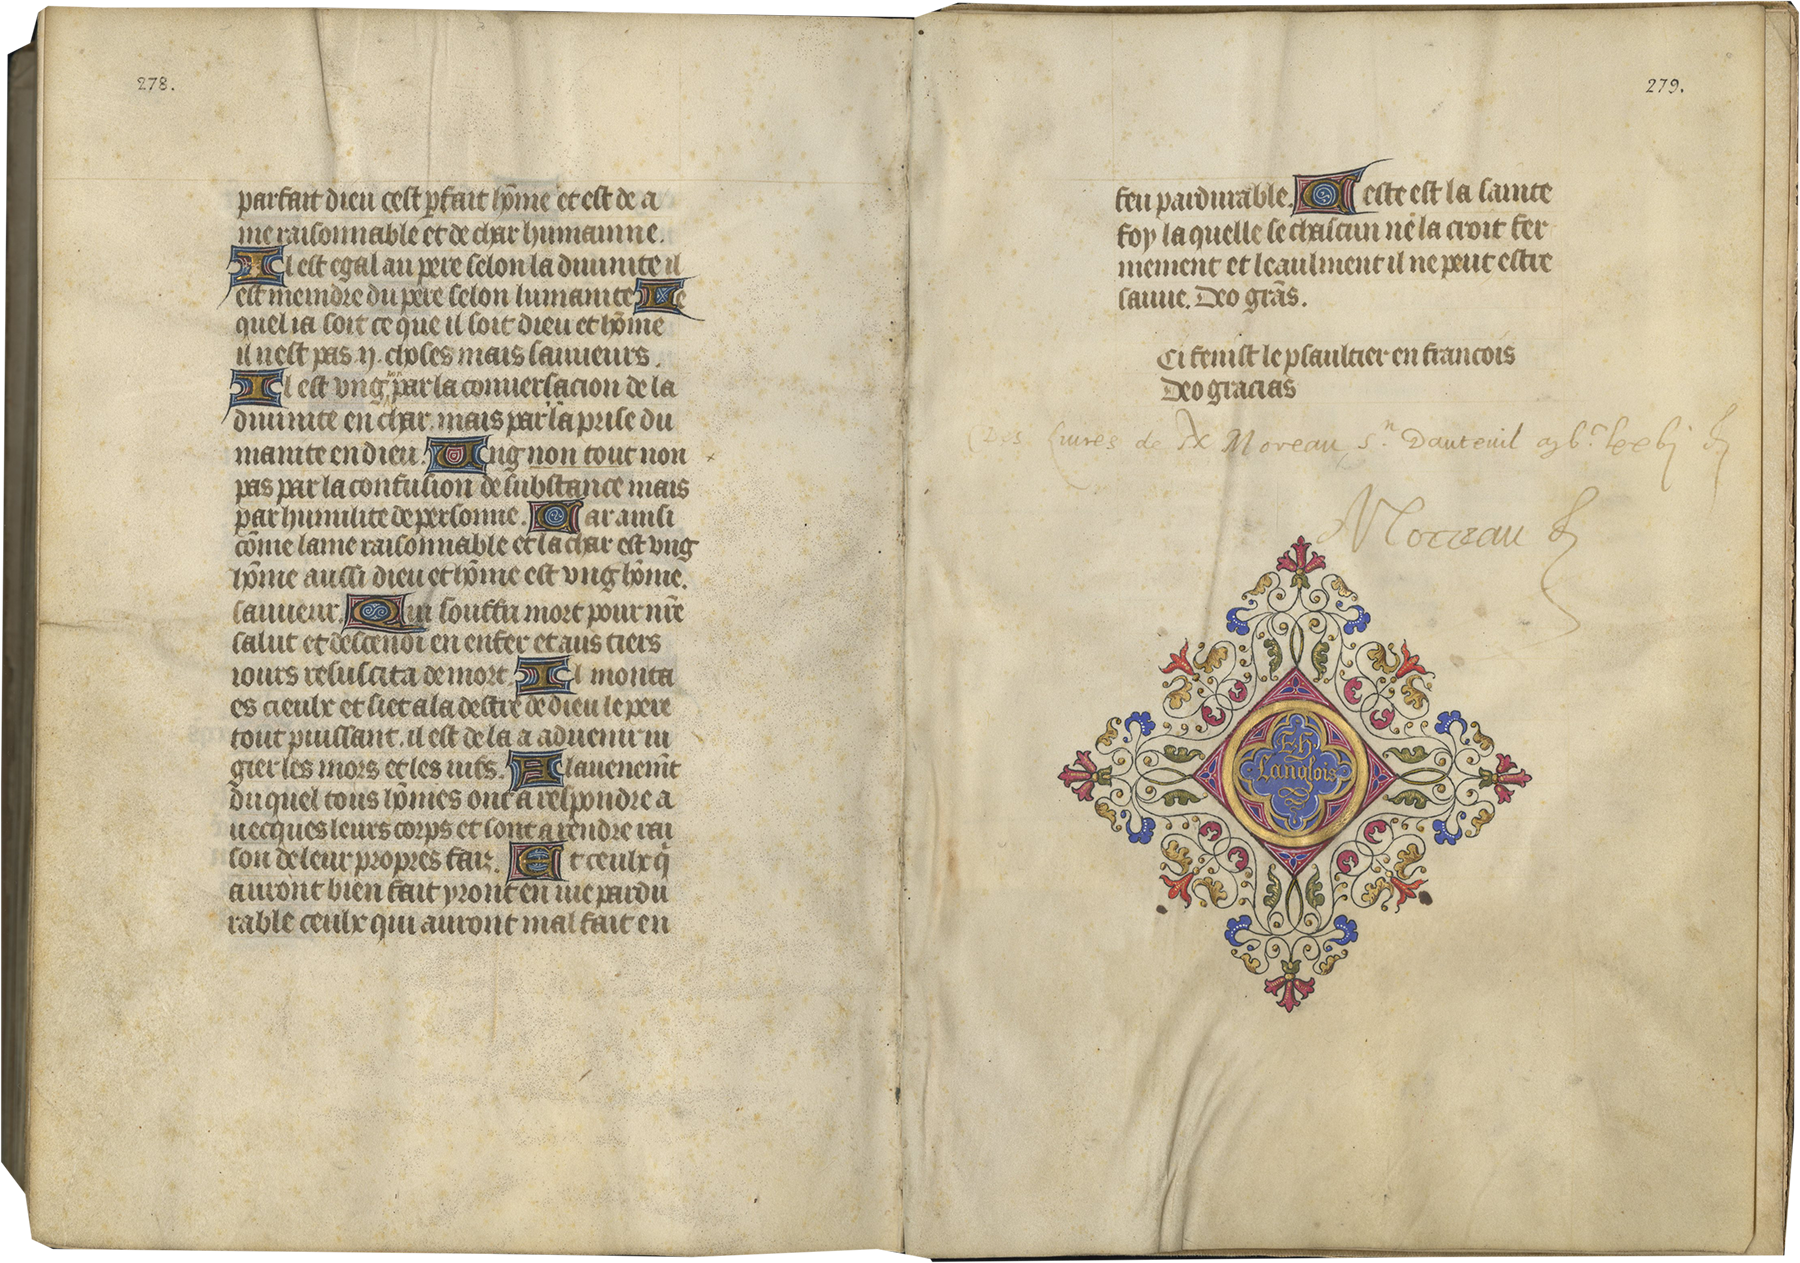 278.
parfait dieu cest ꝑfait hōme et est de a
me raisonnable et de char humainne.
Il est egal au pere selon la diuinite il
est meindre du pere selon lumanite Le
quel ia soit ce que il soit dieu et hōme
il nest pas .ij. choses mais sauueurs.
Il est vng par la conuersacion de la
diuinite en char. mais par la prise du
manite en dieu. Ung non tout non
pas par la confusion de substance mais
par humilite de personne. Car ainsi
cōme lame raisonnable et la char est vng
hōme aussi dieu et hōme est vng hōme.
sauueur. Qui souffri mort pour nr̄e
salut et descendi en enfer et aus tiers
iours resuscita de mort. Il monta
es cieulx et siet a la destre de dieu le pere
tout puissant. il est de la a aduenir iu
gier les mors et les uifs. A lauenemt̄
du quel tous hōmes ont a respondre a
uecques leurs corps et sont a rendre rai
son de leur propres faiz. Et ceulx q̄
auront bien fait yront en uie pardu
rable ceulx qui auront mal fait en
279.
feu pardurable. Ceste est la sainte
foy la quelle se chascun ne la croit fer
mement et leaulment il ne peut estre
sauue. Deo grās.
Ci fenist le psaultier en francois
Deo gracias
Des Liures de Moreau sʳ Dauteuil
Moreau
EH
Langlois